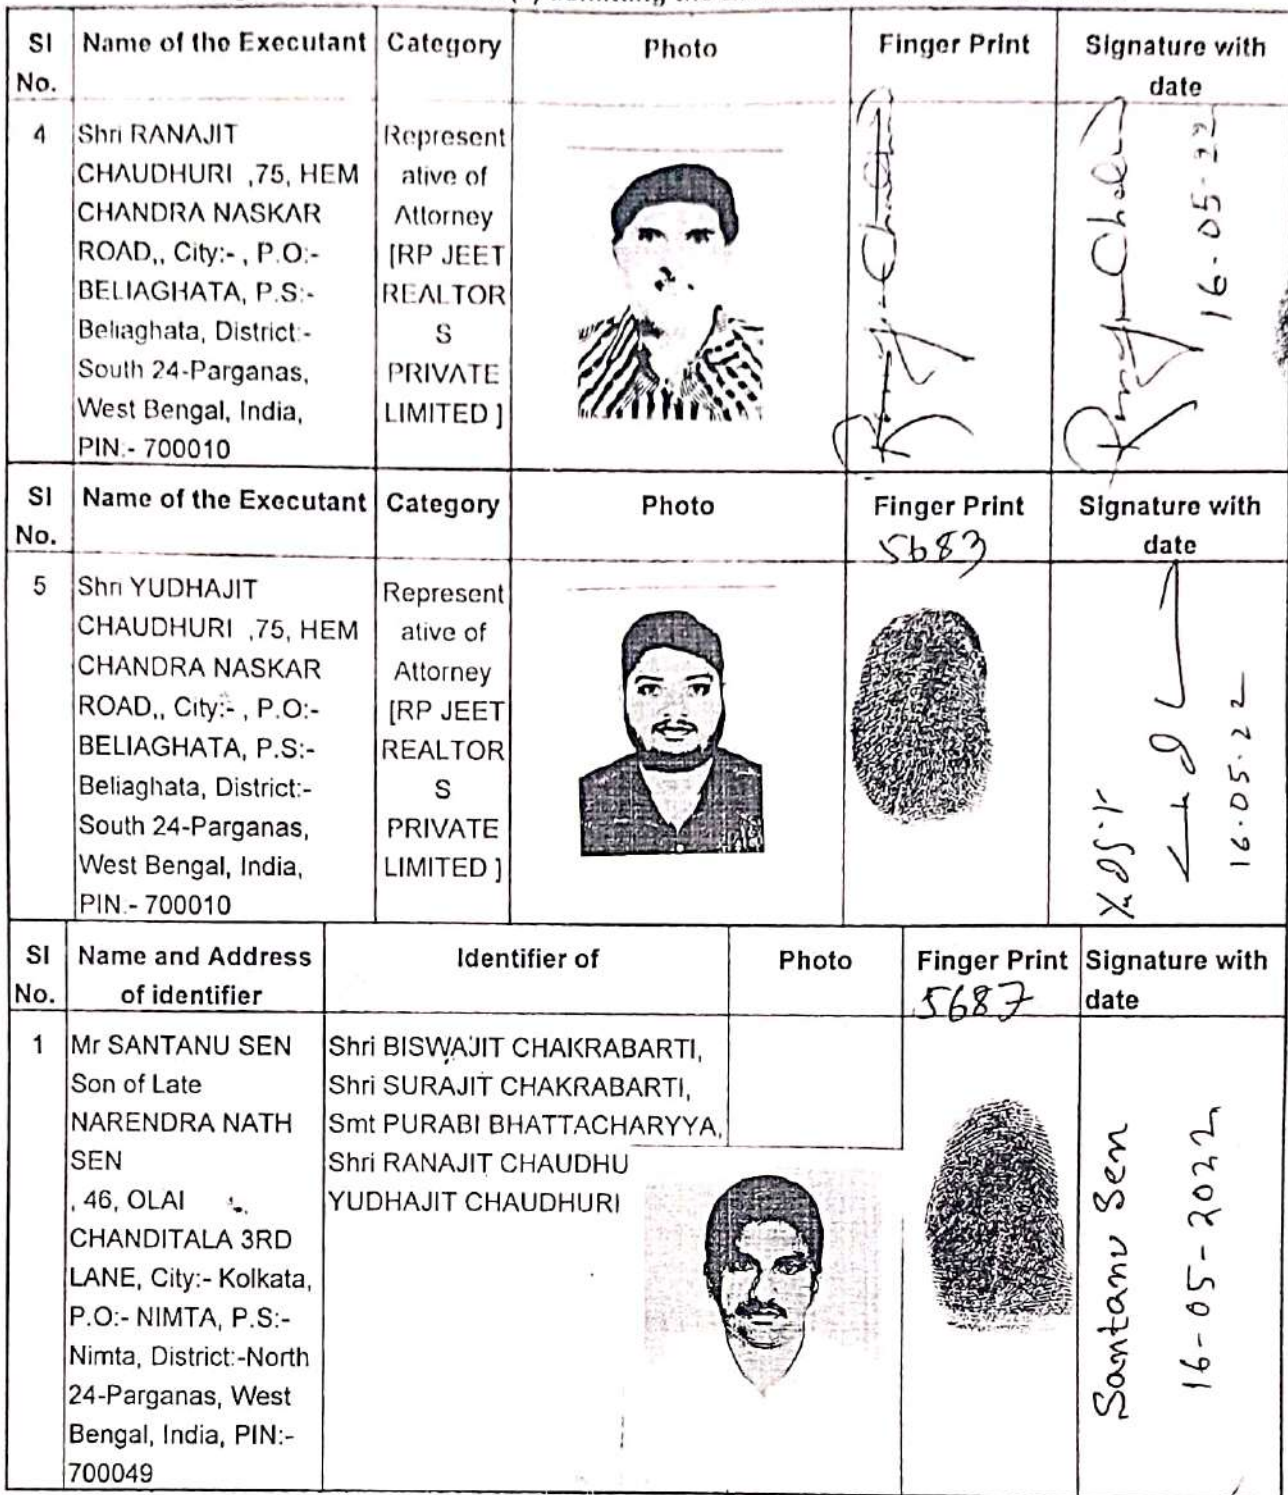 Sl No. Name of the Executant Category Photo Finger Print Signature with date
4 Shri RANAJIT CHAUDHURI ,75, HEM CHANDRA NASKAR ROAD,, City:- , P.O:- BELIAGHATA, P.S:- Beliaghata, District:- South 24-Parganas, West Bengal, India, PIN:- 700010
Represent
ative of
Attorney
[RP JEET
REALTOR
S
PRIVATE
LIMITED ]
16-05-22
Sl No. Name of the Executant Category Photo Finger Print Signature with date
5683
5 Shri YUDHAJIT
CHAUDHURI ,75, HEM
CHANDRA NASKAR
ROAD,, City:- , P.O:-
BELIAGHATA, P.S:-
Beliaghata, District:-
South 24-Parganas,
West Bengal, India,
PIN.- 700010
Represent
ative of
Attorney
[RP JEET
REALTOR
S
PRIVATE
LIMITED ]
16.05.22
Sl No. Name and Address of identifier Identifier of Photo Finger Print Signature with date
5687
1 Mr SANTANU SEN
Son of Late
NARENDRA NATH
SEN
, 46, OLAI
CHANDITALA 3RD
LANE, City:- Kolkata,
P.O:- NIMTA, P.S:-
Nimta, District:-North
24-Parganas, West
Bengal, India, PIN:-
700049
Shri BISWAJIT CHAKRABARTI,
Shri SURAJIT CHAKRABARTI,
Smt PURABI BHATTACHARYYA,
Shri RANAJIT CHAUDHU
YUDHAJIT CHAUDHURI
Santanu Sen
16-05-2022